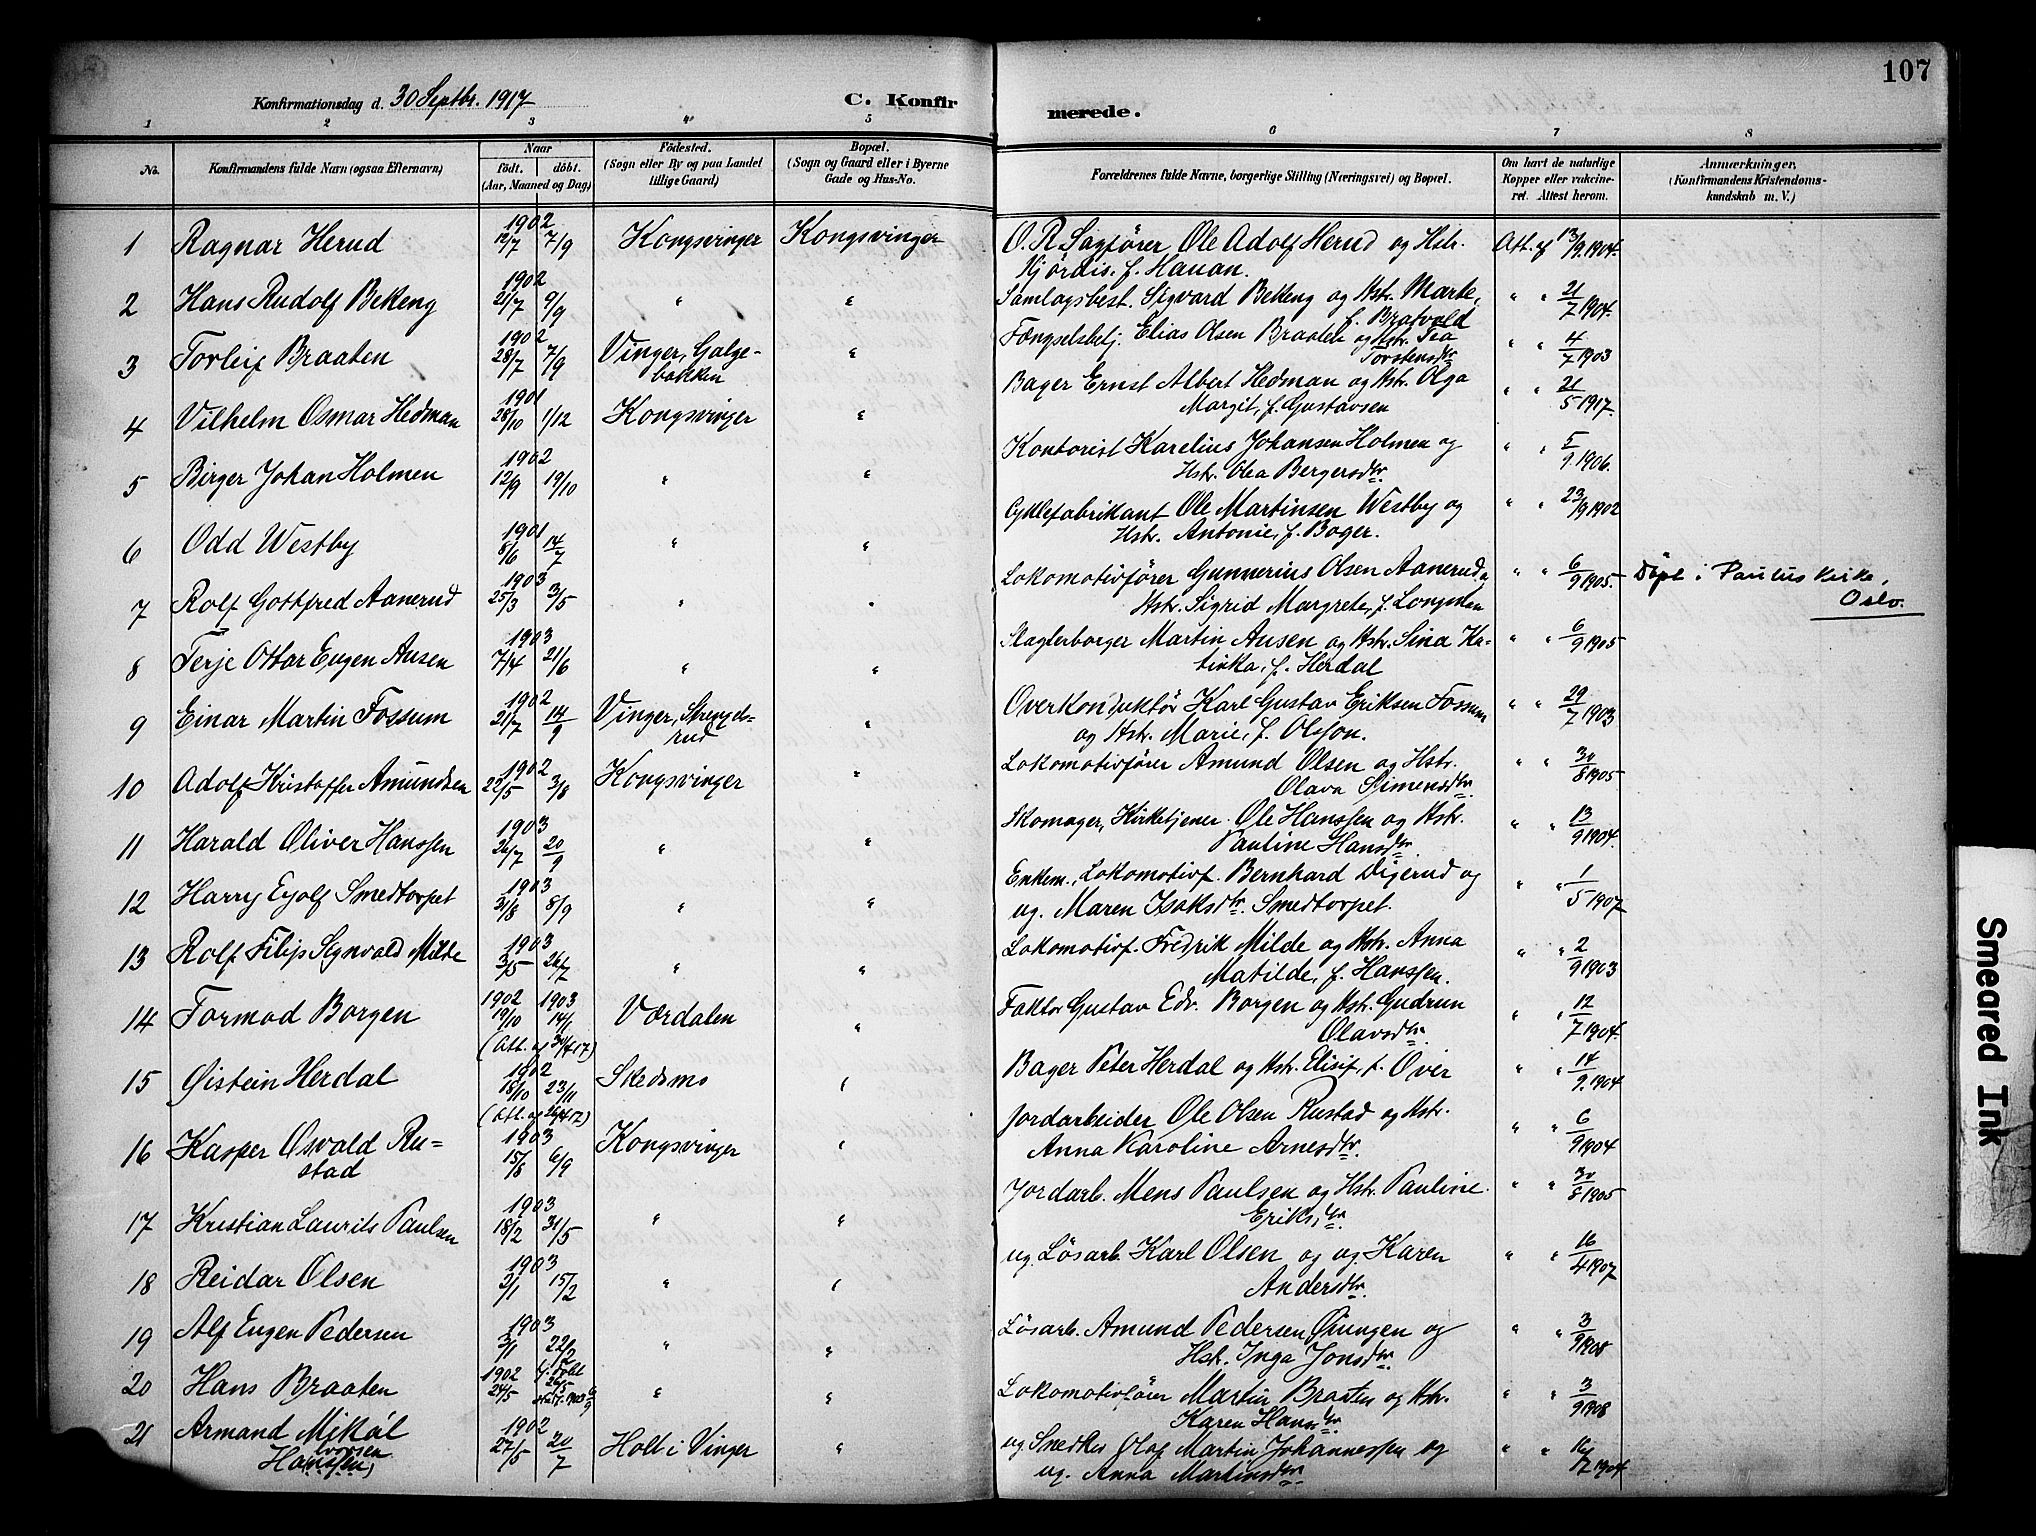 107
Konfirmationsdag d. 30 Septbr. 1917
C. Konfirmerede.
1 2 3 4 5 6 7 8
No. Konfirmandens fulde Navn (ogsaa Efternavn) Naar født. døbt. (Aar, Maaned og Dag) Fødested. (Sogn eller By og paa Landet tillige Gaard) Bopæl. (Sogn og Gaard eller i Byerne Gade og Hus-No. Forældrenes fulde Navne, borgerlige Stilling (Næringsvei) og Bopæl. Om havt de naturlige Kopper eller vakcineret. Attest herom. Anmærkninger. (Konfirmandens Kristendomskundskab m. V.)
1 Ragnar Herud 1902 12/7 7/9 Kongsvinger Kongsvinger O. R. Sagfører Ole Adolf Herud og Hstr. Att. af 13/9 1904.
Hjördis, f. Hauan.
2 Hans Rudolf Bekeng 1902 21/7 9/9 " " Samlagsbest. Sigvard Bekeng og Hstr. Marte, " " 21/7 1904.
f. Bratvold
3 Torleif Braaten 1902 28/7 7/9 Vinger, Galgebakken " Fængselsbetj. Elias Olsen Braaten og Hstr. Tea " " 4/7 1903
Torstensdtr
4 Vilhelm Osmar Hedman 1901 28/10 1/12 Kongsvinger " Bager Ernst Albert Hedman og Hstr. Olga " " 21/5 1917.
Margit, f. Gustavsen
5 Birger Johan Holmen 1902 12/9 19/10 " " Kontorist Karelius Johansen Holmen og " " 5/9 1906.
Hstr. Olea Bergersdtr.
6 Odd Westby 1901 8/6 14/7 " " Cyklefabrikant Ole Martinsen Westby og " " 23/9 1902
Hstr. Antonie, f. Bager.
7 Rolf Gottfred Aanerud 1903 25/3 3/5 " " Lokomotivfører Gunnerius Olsen Aanerud og " " 6/9 1905. Döpt i Paulus kirke,
Hstr. Sigrid Margrete, f. Longsten Oslo.
8 Terje Ottar Eugen Ausen 1903 7/4 21/6 " " Slagterborger Martin Ausen og Hstr. Sina Ka- " " 6/9 1905
tinka, f. Herdal
9 Einar Martin Fossum 1902 21/7 14/9 Vinger, Skrengelsrud " Overkonduktör Karl Gustav Eriksen Fossum " " 29/7 1903
og Hstr. Marie, f. Olsson.
10 Adolf Kristoffer Amundsen 1902 22/5 3/8 Kongsvinger " Lokomotivfører Amund Olsen og Hstr. " " 30/8 1905
Olava Simensdtr
11 Harald Oliver Hanssen 1903 26/7 20/9 " " Skomager, Kirketjener Ole Hanssen og Hstr. " " 13/9 1904.
Pauline Hansdtr
12 Harry Eyolf Smedtorpet 1903 31/8 8/9 " " Enkem., Lokomotivf. Bernhard Digerud og " " 1/5 1907
ug. Maren Isaksdtr. Smedtorpet.
13 Rolf Filip Synvald Milde 1903 3/5 26/7 " " Lokomotivf. Fredrik Milde og Hstr. Anna " " 2/9 1903
Matilde, f. Hanssen.
14 Tormod Borgen 1902 19/10 1903 14/1 Værdalen " Faktor Gustav Edv. Borgen og Hstr. Gudrun " " 12/7 1904.
(Att. af 30/4 17) Olavsdtr.
15 Øistein Herdal 1902 18/10 23/11 Skedsmo " Bager Peter Herdal og Hstr. Elisif, f. Over " " 14/9. 1904
(Att. af 26/4 17)
16 Kasper Osvald Rustad 1903 15/8 6/9 Kongsvinger " Jordarbeider Ole Olsen Rustad og Hstr. " " 6/9 1904
Anna Karoline Arnesdtr.
17 Kristian Laurits Paulsen 1903 18/2 31/5 " " Jordarb. Mens Paulsen og Hstr. Pauline " " 30/8 1905
Eriksdtr.
18 Reidar Olsen 1903 2/1 15/2 " " ug. Løsarb. Karl Olsen og ug. Karen " " 16/4 1907
Andersdtr.
19 Alf Eugen Pedersen 1903 3/1 22/2 " " Løsarb. Amund Pedersen Øiungen og " " 3/9 1908
Hstr. Inga Jonsdtr.
20 Hans Braaten 1902 24/5 " " Lokomotivfører Martin Braaten og Hstr. " " 3/9 1908
Karen Hansdtr.
21 Armand Mikal 1902 27/5 20/7 Holt i Vinger " ug Snedker Olaf Martin Johannessen og " " 1904
Hanssen, Iversen ug. Anna Martinsdtr
Smeared Ink